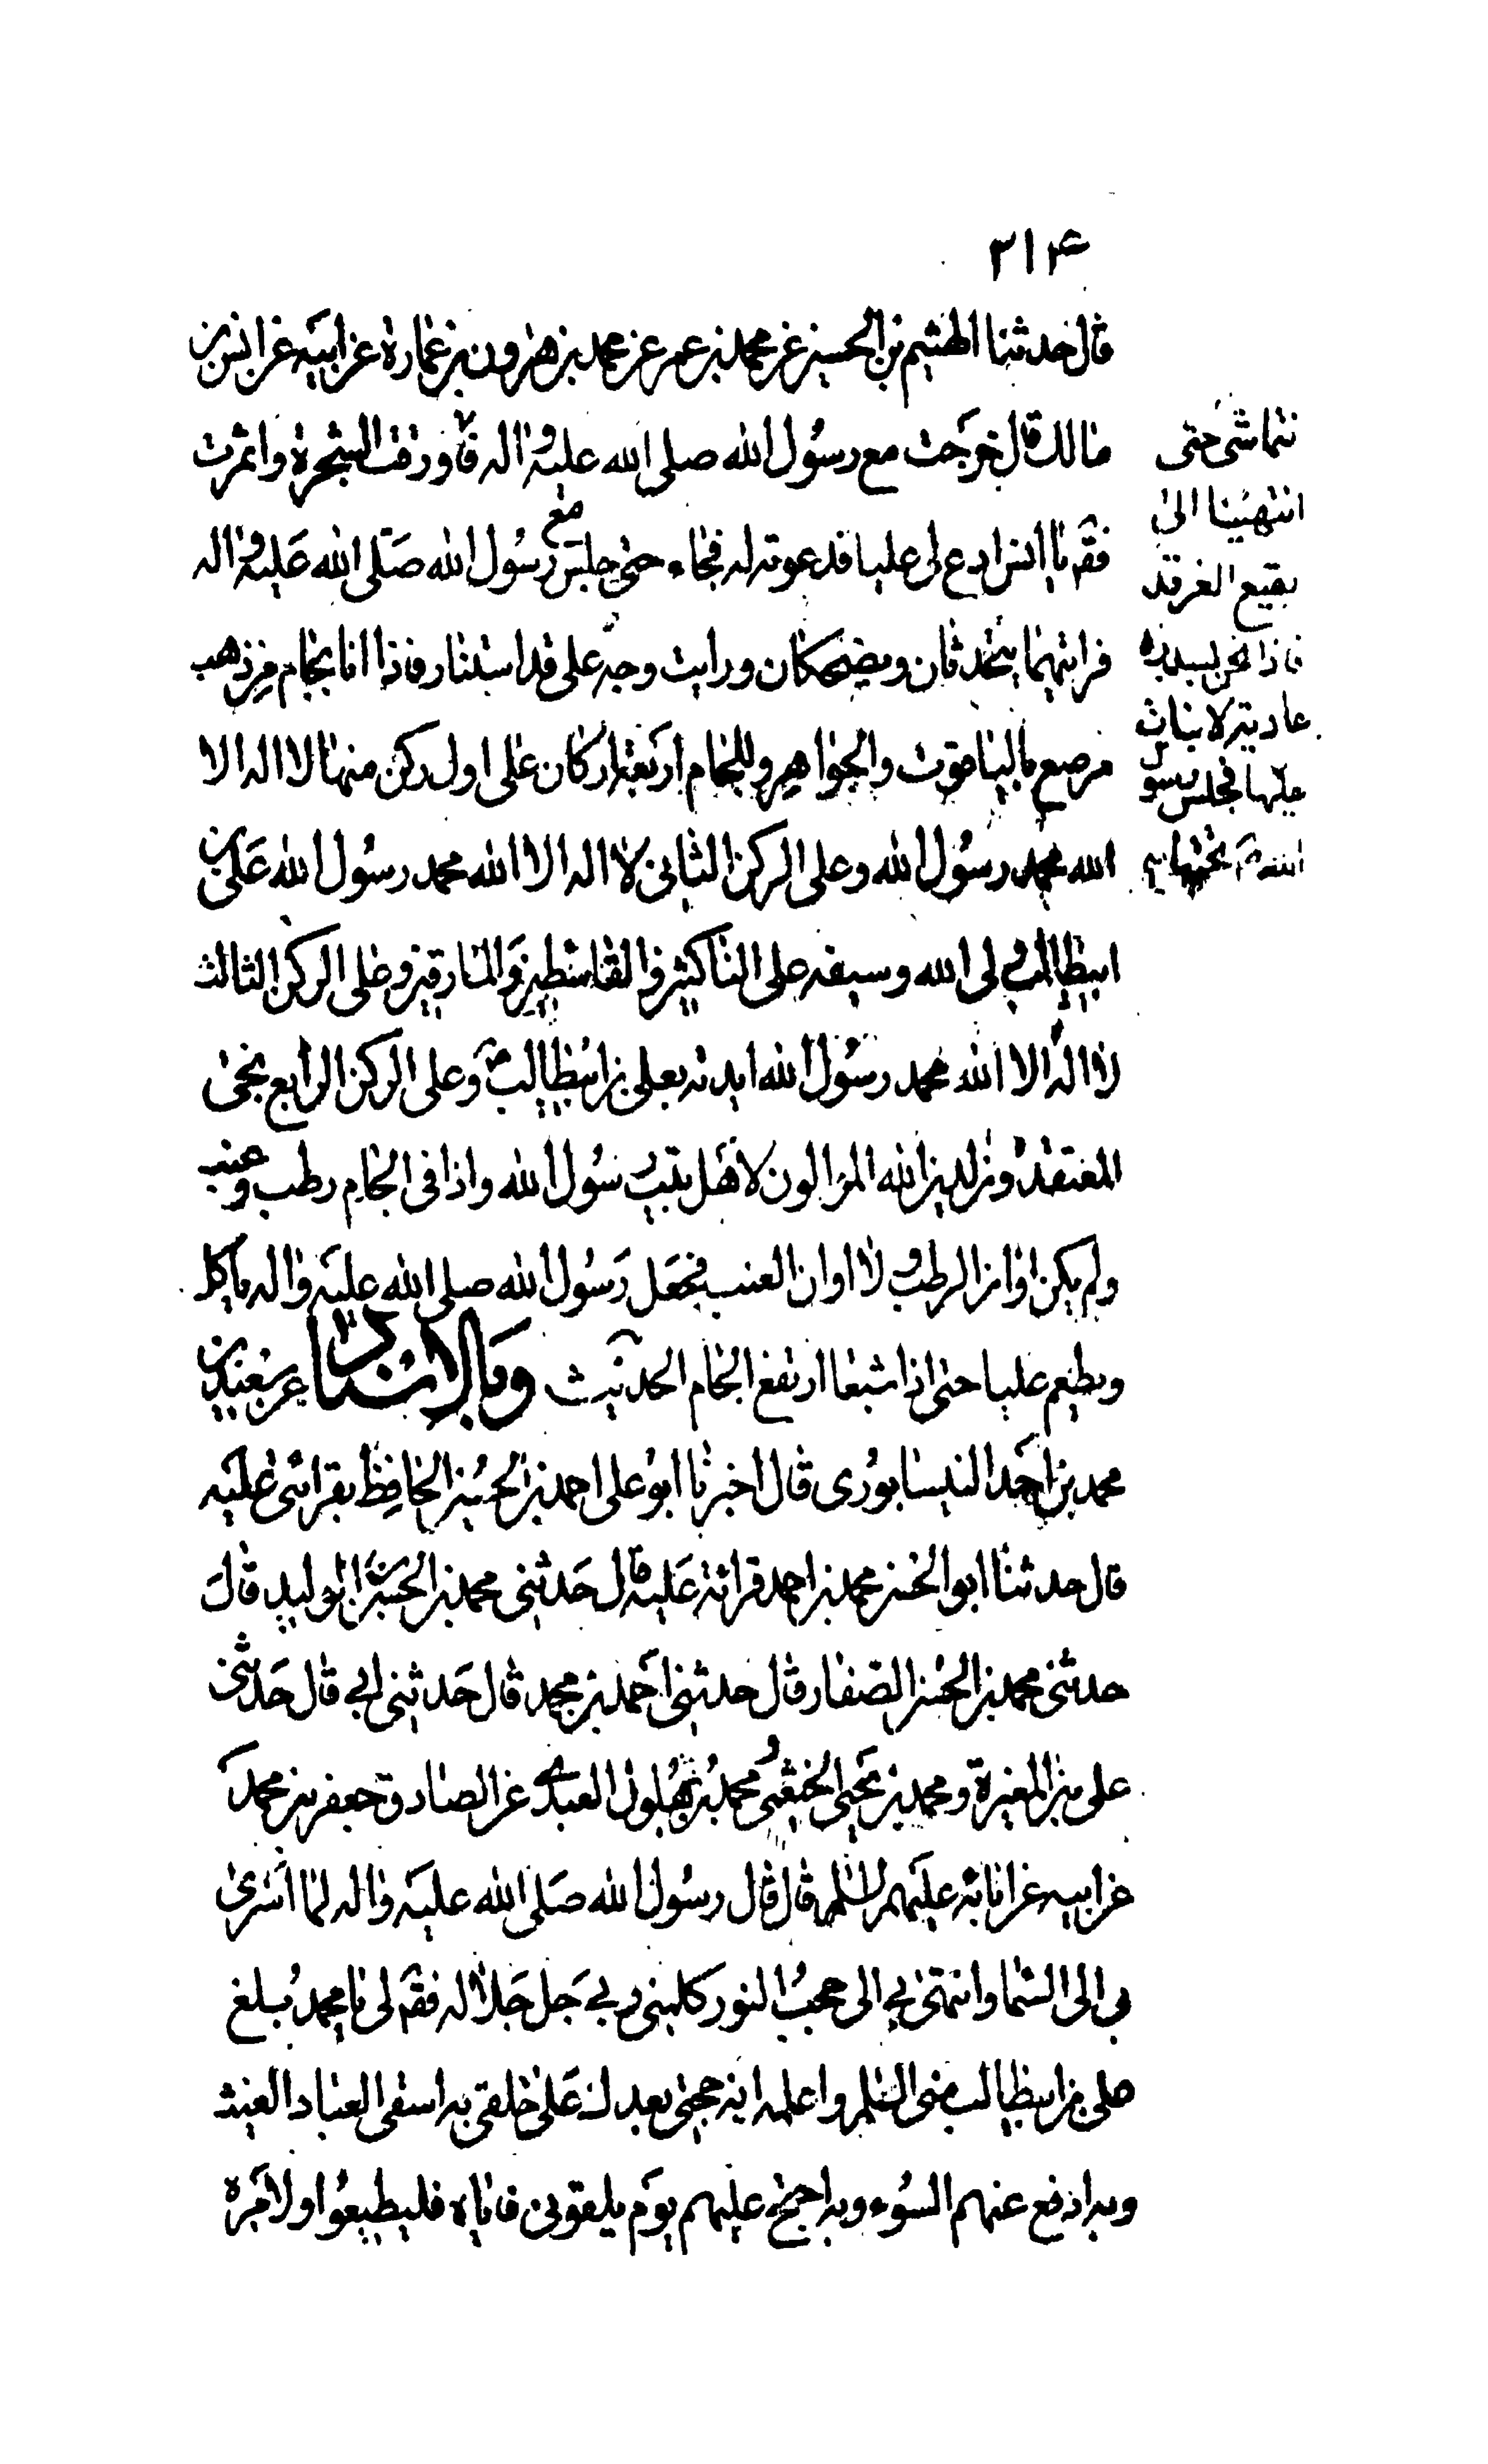 ٣١٤
قال حدثنا الهشيم بن الحسين عن محمد بن عمر عن محمد بن هرون بن عمارة عن ابيه عن انس بن
مالك قال خرجت مع رسول الله صلى الله عليه واله فاورقت الشجرة واثمرت
فقم يا انس ادع لي عليا فدعوته له فجاء حتى جلس مع رسول الله صلى الله عليه واله
فرايتهما يتحدثان ويضحكان ورايت وجه على قد استنار فاذا انا بجام من ذهب
مرصع باليا قوت والجواهر وللجام اربعة اركان على اول ركن منها لا اله الا
الله محمد رسول الله وعلى الركن الثاني لا اله الا الله محمد رسول الله على بن
ابيطالب ولى الله وسيفه على الناكثين والقاسطين والمارقين وعلى الركن الثالث
لا اله الا الله محمد رسول الله ايدته بعلى بن ابيطالب وعلى الركن الرابع نجى
المعتقدون لدين الله الموالون لاهل بيت رسول الله واذا في الجام رطب وعنب
ولم يكن اوان الرطب ولا اوان العنب فجعل رسول الله صلى الله عليه واله ياكل
ويطعم عليا حتى اذا شبعا ارتفع الجام الحديث وبالاسناد عن سعيد بن
محمد بن احمد النيسابوري قال اخبرنا ابو على احمد بن الحسين الحافظ بقرائتى عليه
قال حدثنا ابو الحسن محمد بن احمد قرائة عليه قال حدثني محمد بن الحسن بن الوليد قال
حدثنى محمد بن الحسن الصفار قال حدثنى احمد بن محمد قال حدثني ابي قال حدثني
على بن المغيرة ومحمد بن يحيى الخثعمى محمد بن بهلول العبدى عن الصادق جعفر بن محمد
عن ابيه عن ابائه عليهم السلم قال قال رسول الله صلى الله عليه واله لما اسرى
بي الى السما وانتهى بي الى حجب النور كلمنى ربي جل جلاله فقم لى يا محمد بلغ
على بن ابيطالب منى السلم واعلمه انه حجتى بعدك على خلقى به اسقى العباد الغيث
وبه ادفع عنهم السوء وبه احتج عليهم يوم يلقوني فاياه فليطيعوا ولامره
نتماشى حتى
انتهينا الى
بقيع الغرقد
فاذا نحن بسدرة
عادية لانبات
عليها فجلس رسول
الله تحتها